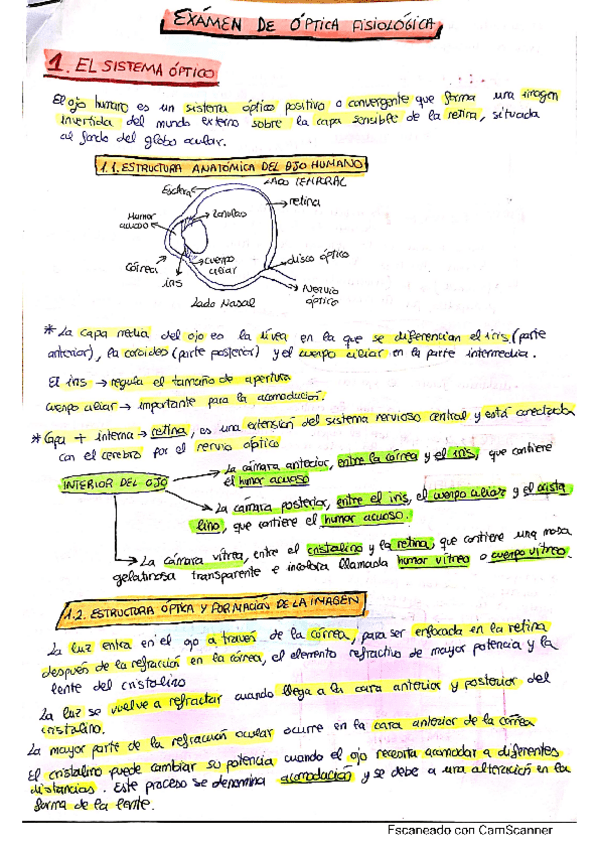 EXÁMEN DE ÓPTICA FISIOLÓGICA
1. EL SISTEMA ÓPTICO
El ojo humano es un sistema óptico positivo o convergente que forma una imagen
invertida del mundo externo sobre la capa sensible de la retina, situada
al fondo del globo ocular.
1.1. ESTRUCTURA ANATÓMICA DEL OJO HUMANO
Lado TEMPORAL
Esclera
retina
Humor
acuoso
córnea
iris
cuerpo
ciliar
disco óptico
Nervio
óptico
Lado Nasal
* La capa media del ojo es la úvea en la que se diferencian el iris (parte
anterior), la coroides (parte posterior) y el cuerpo ciliar en la parte intermedia.
El iris → regula el tamaño de apertura
cuerpo ciliar → importante para la acomodación.
* Capa + interna → retina, es una extensión del sistema nervioso central y está conectada
con el cerebro por el nervio óptico
INTERIOR DEL OJO
La cámara anterior, entre la córnea y el iris, que contiene
el humor acuoso
La cámara posterior, entre el iris, el cuerpo ciliar y el crista
lino, que contiene el humor acuoso.
La cámara vítrea, entre el cristalino y la retina, que contiene una masa
gelatinosa transparente e incolora llamada humor vítreo o cuerpo vítreo.
1.2. ESTRUCTURA ÓPTICA Y FORMACIÓN DE LA IMAGEN
La luz entra en el ojo a través de la córnea, para ser enfocada en la retina
después de la refracción en la córnea, el elemento refractivo de mayor potencia y la
lente del cristalino
La luz se vuelve a refractar cuando llega a la cara anterior y posterior del
cristalino.
La mayor parte de la refracción ocular ocurre en la cara anterior de la córnea
El cristalino puede cambiar su potencia cuando el ojo necesita acomodar a diferentes
distancias. Este proceso se denomina acomodación y se debe a una alteración en la
forma de la lente.
Escaneado con CamScanner